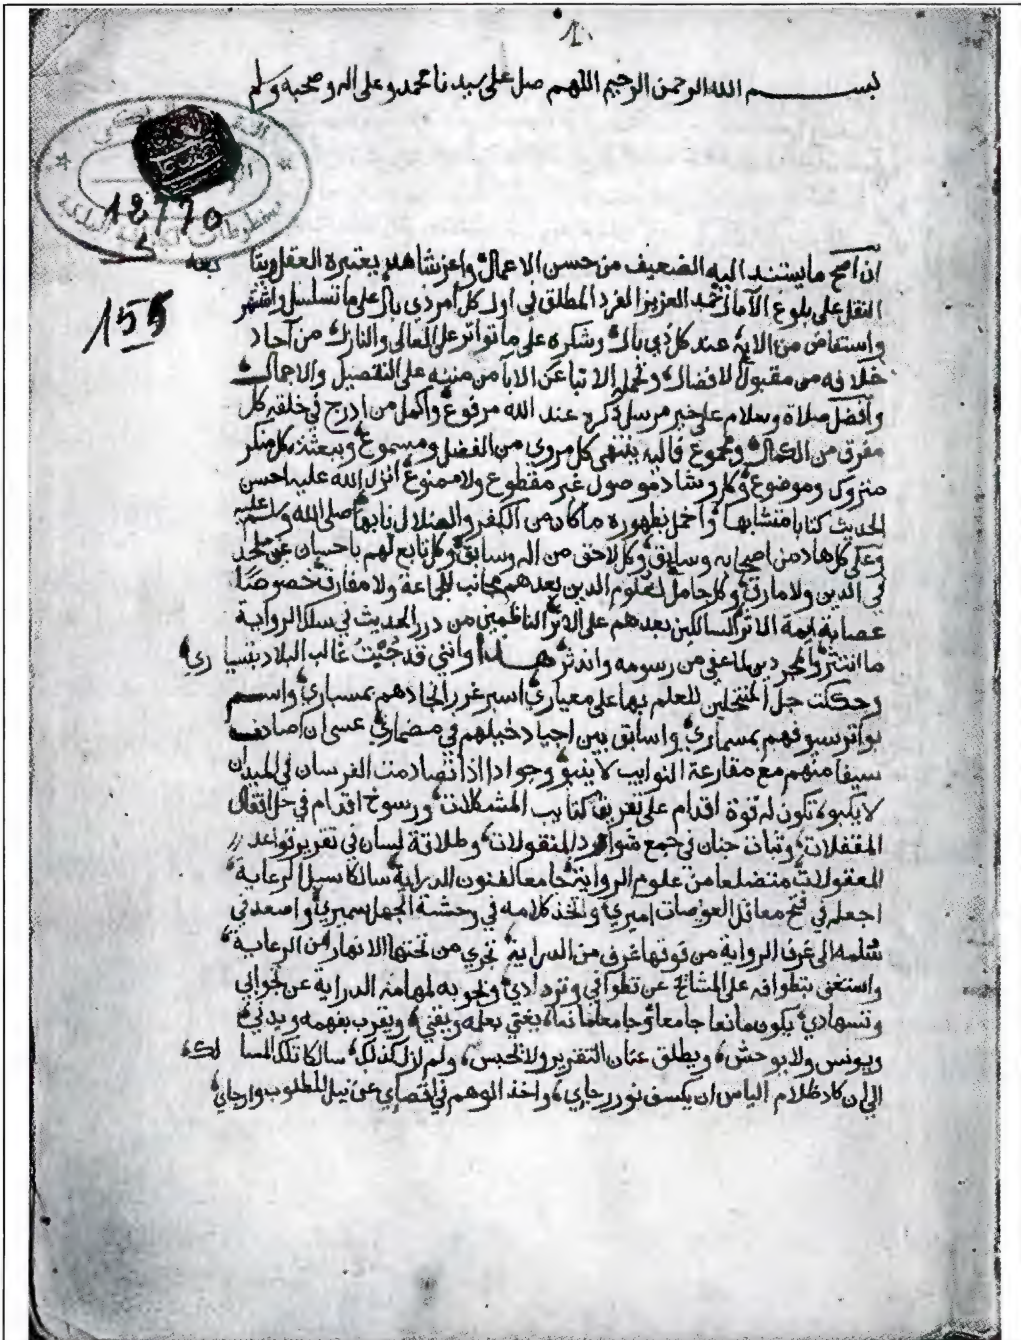 1
بســـم الله الرحمن الرحيم اللهم صل على سيدنا محمد وعلى اله وصحبه وسلم
18770
155
ان اصح ما يستند اليه الضعيف من حسن الاعمال واعز شاهد يعتبره العقل ويتابعه
النقل على بلوغ الآمال حمد العزيز الفرد المطلق في اول كل أمر ذي بال على ما تسلسل واشتهر
واستفاض من الايه عند كل ذي بال وشكره على ما تواتر على المعالي والنازل من آحاد
خلافه من مقبول الافضال وتحمله الاتباع عن الابا من مننه على التفصيل والاجمال
وأفضل صلاة وسلام على خير مرسل ذكره عند الله مرفوع وأكمل من ادرج في خلقه كل
مفرق من الكمال ومجموع فاليه ينتهي كل مروي من الفضل ومسموع وببعثته كل منكر
متروك وموضوع وكل وشاد موصول غير مقطوع ولا ممنوع انزل الله عليه احسن
الحديث كتابا متشابها واخمل بظهوره ما كان من الكفر والضلال نابها صلى الله وسلم عليه
وعلى كل هاد من اصحابه وسابق وكل لاحق من اله وسابق وكل تابع لهم باحسان غير ملحد
في الدين ولا مارق وكل حامل لعلوم الدين بعدهم مجانب للجماعة ولا مفارق خصوصا
عصابة ايمة الاثر السالكين بعدهم على الاثر الناظمين من درر الحديث في سلك الرواية
ما انتثر والمجردين لما عفى من رسومه واندثر هـــذا وانني قد جُبْتُ غالب البلاد بتسياري
وحككت جل المنتحلين للعلم بها على معياري اسبر غور انجادهم بمسباري واسم
بواتر سيوفهم بمسماري واسابق بين اجياد خيلهم في مضماري عسى ان اصادف
سيفا منهم مع مقارعة النوايب لا ينبو وجوادا اذا تصادمت الفرسان في الميدان
لا يكبو تكون له قوة اقدام على تفريق كتايب المشكلات ورسوخ اقدام في حل اقفال
المقفلات وثبات جنان في جمع شوارد المنقولات وطلاقة لسان في تقرير قواعد
المعقولات متضلعا من علوم الرواية جامعا لفنون الدراية سالكا سبيل الرعاية
اجعله في فتح معاقل العويصات اميري واتخذ كلامه في وحشة الجهل سميري واصعد في
سُلمه الى غرف الرواية من فوقها غرف من الدراية تجري من تحتها الانهار من الرعاية
واستغنى بتطوافه على المشائخ عن تطوافي وتردادي وبجوبه لمهامه الدراية عن تجوالي
وتسهادي يكون مانعا جامعا وجامعا مانعا يغني بعلمه ويقني ويقرب بفهمه ويدني
ويونس ولا يوحش ويطلق عنان التقرير ولا يحبس ولم ازل كذلك سالكا تلك المسالك
الى ان كاد ظلام الياس ان يكسف نور رجاي واخذ الوهم في اقصاي عن نيل المطلوب وارجاي